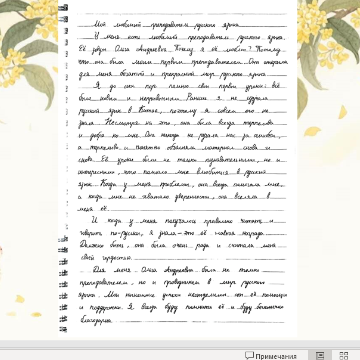 Мой любимый преподаватель русского языка
У меня есть любимый преподаватель русского языка.
Её зовут Ольга Андреевна. Почему я её люблю? Потому
что она была моим первым преподавателем. Она открыла
для меня богатый и прекрасный мир русского языка.
Я до сих пор помню свои первые уроки: всё
было новым и непривычным. Раньше я не изучала
русский язык в Китае, поэтому я совсем его не
знала. Несмотря на это, она была всегда терпелива
и добра ко мне. Она никогда не ругала нас за ошибки,
а терпеливо и понятно объясняла материал снова и
снова. Её уроки были не только познавательными, но и
интересными, что помогло мне влюбиться в русский
язык. Когда у меня проблемы, она всегда помогала мне,
а когда мне не хватало уверенности, она вселяла в
меня её.
И когда у меня получалось правильно читать и
говорить по-русски, я знала – это её главная награда.
Должно быть, она была очень рада и считала меня
своей гордостью.
Для меня Ольга Андреевна была не только
преподавателем, но и проводником в мир русского
языка. Мои нынешние успехи неотделимы от её помощи
и поддержки. Я всегда буду помнить её и буду бесконечно
благодарна.
Примечания